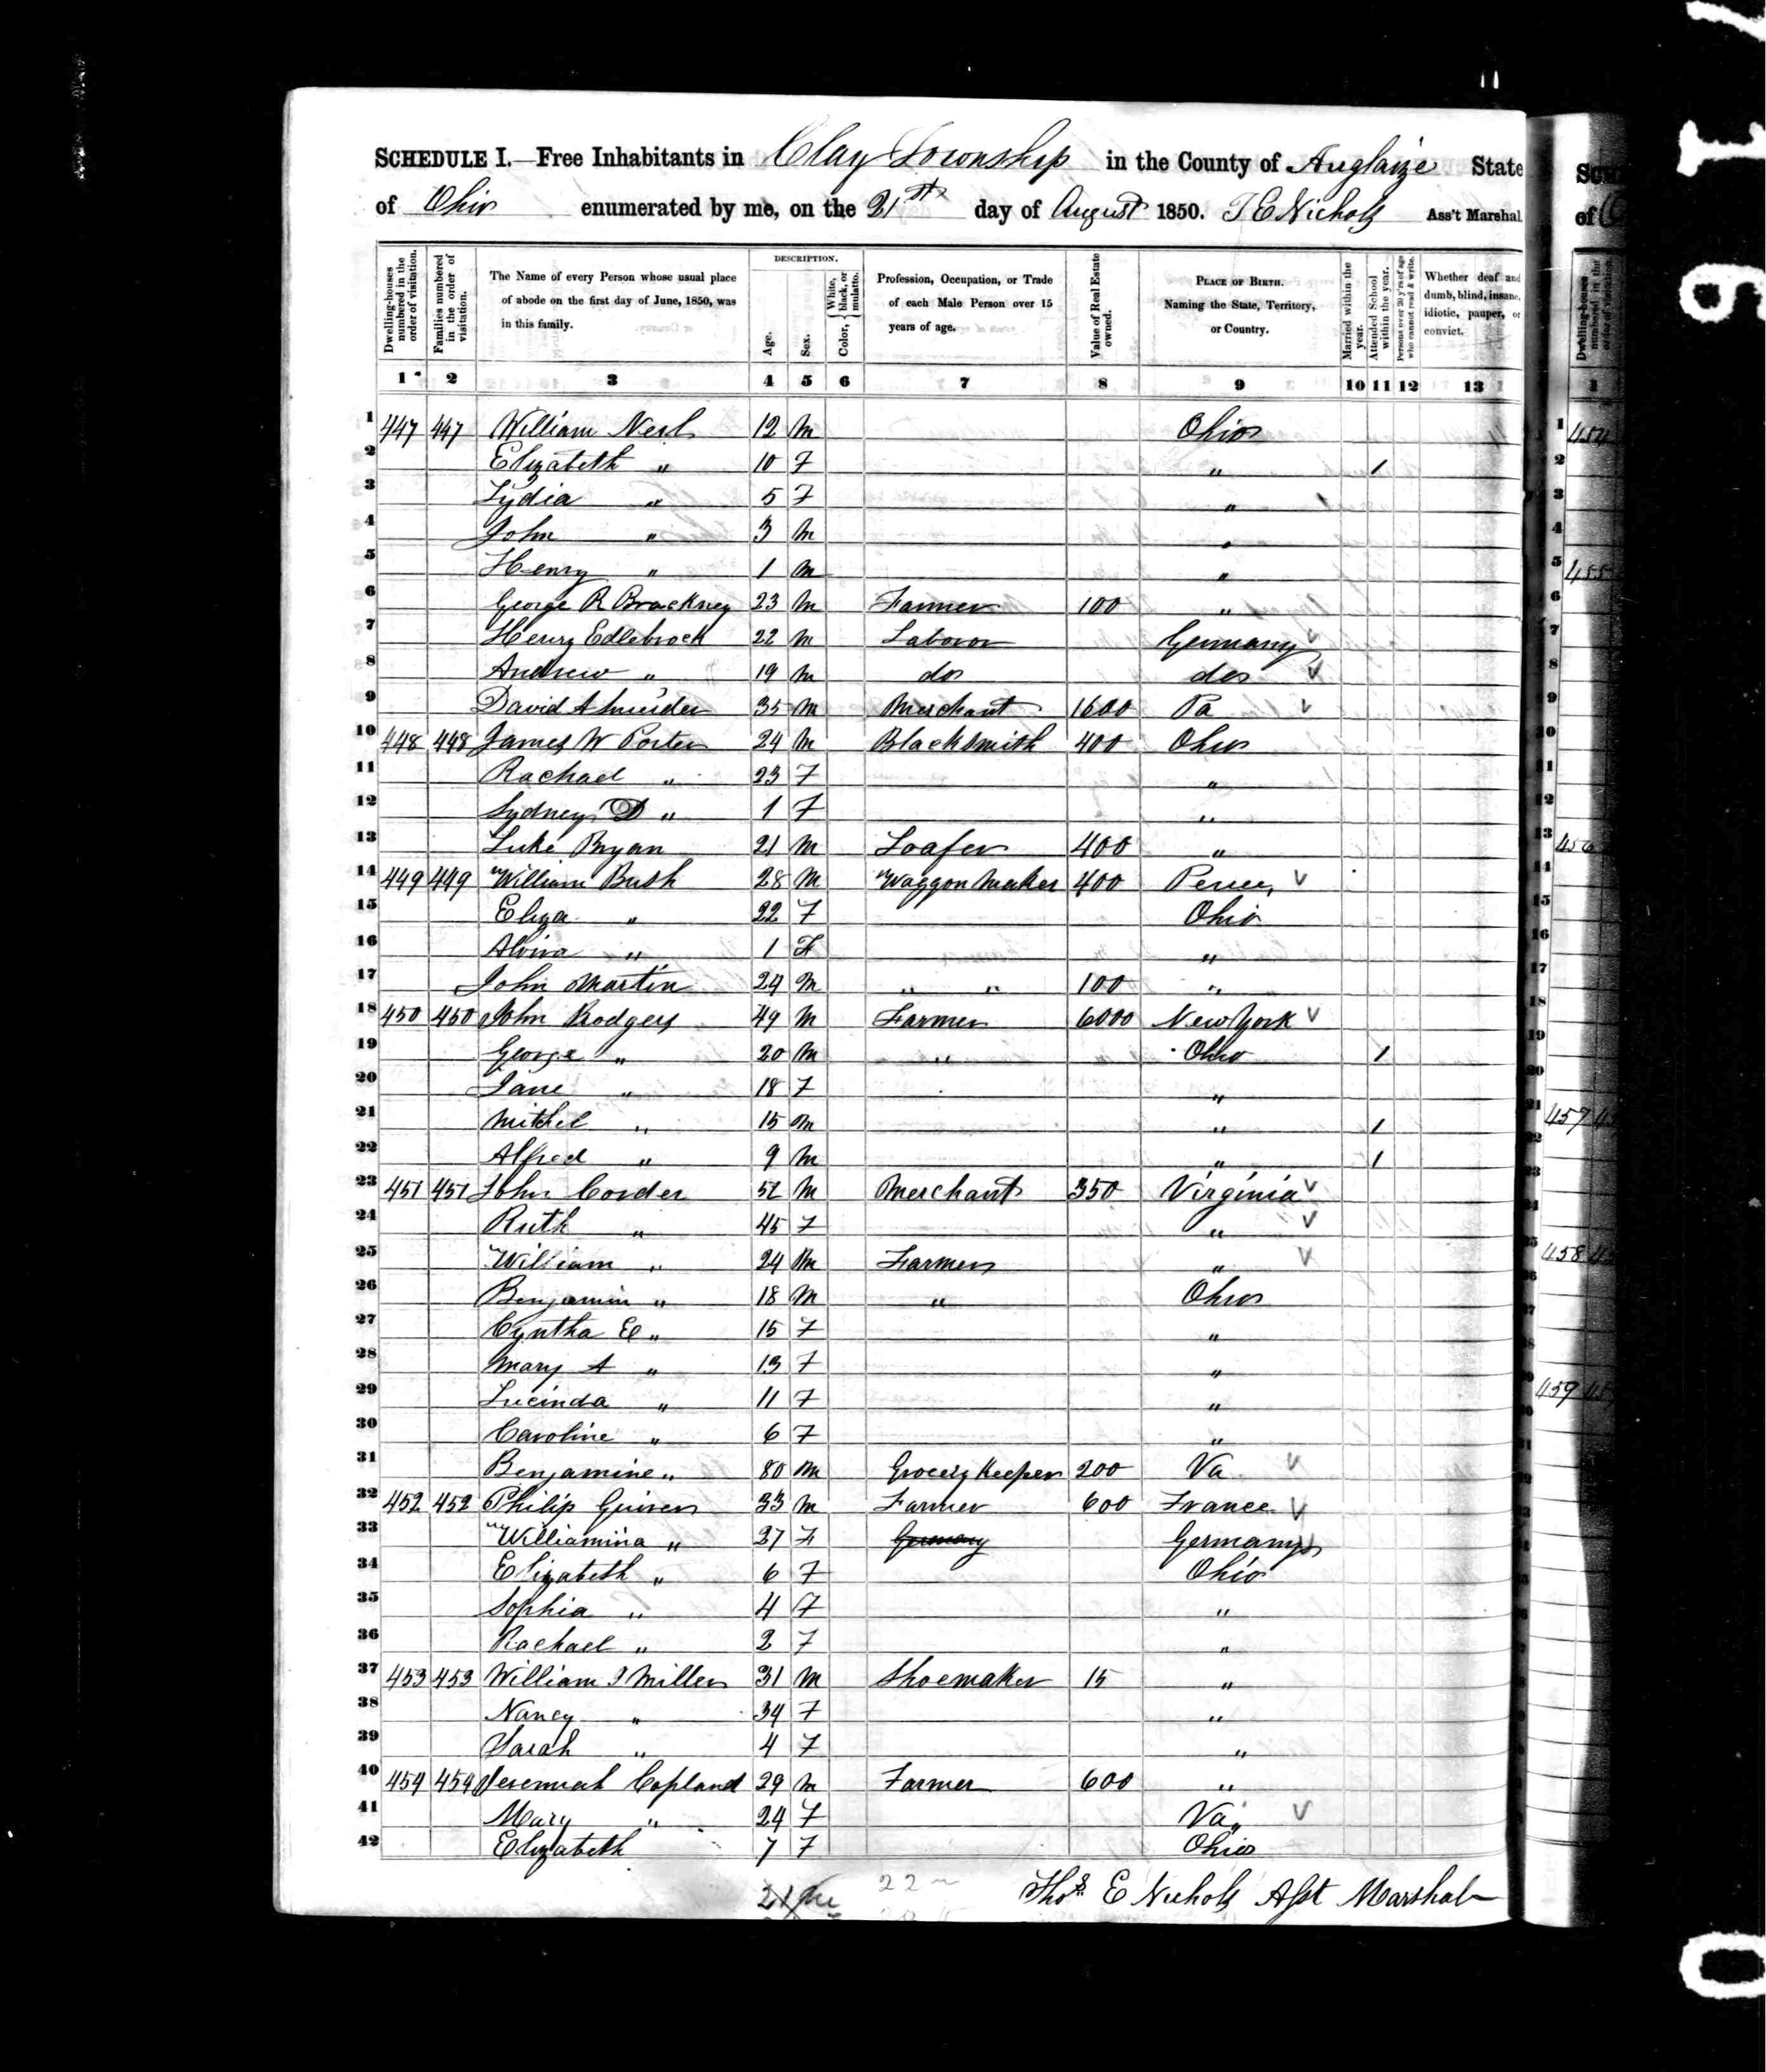 SCHEDULE I.—Free Inhabitants in Clay Township in the County of Auglaize State
of Ohio enumerated by me, on the 21st day of August 1850. T E Nichols Ass't Marshal
DESCRIPTION.
Dwelling-houses numbered in the order of visitation.
Families numbered in the order of visitation.
The Name of every Person whose usual place of abode on the first day of June, 1850, was in this family.
Age.
Sex.
Color, White, black, or mulatto.
Profession, Occupation, or Trade of each Male Person over 15 years of age.
Value of Real Estate owned.
PLACE OF BIRTH. Naming the State, Territory, or Country.
Married within the year.
Attended School within the year.
Persons over 20 y'rs of age who cannot read & write.
Whether deaf and dumb, blind, insane, idiotic, pauper, or convict.
1 2 3 4 5 6 7 8 9 10 11 12 13
1 447 447 William 12 M Ohio
2 Elizabeth " 10 F " /
3 Lydia " 5 F "
4 John " 3 M "
5 Henry " 1 M "
6 George R Brackney 23 M Farmer 100 "
7 Henry Edlebrock 22 M Laboror Germany
8 Andrew " 19 M do do
9 David 35 M Merchant 1600 Pa
10 448 448 James W Porter 24 M Blacksmith 400 Ohio
11 Rachael " 23 F "
12 Sydney D " 1 F "
13 Luke Bryan 21 M Loafer 400 "
14 449 449 William Bush 28 M Waggon Maker 400
15 Eliza " 22 F Ohio
16 Alvira " 1 F "
17 John Martin 24 M " " 100 "
18 450 450 John Rodgers 49 M Farmer 6000 New York
19 George " 20 M " Ohio /
20 Jane " 18 F "
21 Mitchel " 15 M " /
22 Alfred " 9 M " /
23 451 451 John Corder 52 M Merchant 350 Virginia
24 Ruth " 45 F "
25 William " 24 M Farmer "
26 Benjamin " 18 M " Ohio
27 Cyntha E " 15 F "
28 Mary A " 13 F "
29 Lucinda " 11 F "
30 Caroline " 6 F "
31 Benjamine " 80 M Grocery Keeper 200 Va
32 452 452 Philip 33 M Farmer 600 France
33 Williamina " 27 F Germany Germany
34 Elizabeth " 6 F Ohio
35 Sophia " 4 F "
36 Rachael " 2 F "
37 453 453 William J Miller 31 M Shoemaker 15 "
38 Nancy " 34 F "
39 Sarah " 4 F "
40 454 454 Jeremiah Copland 29 M Farmer 600 "
41 Mary " 24 F Va "
42 Elizabeth 7 F Ohio
22 m
Thos E Nichols Asst Marshal